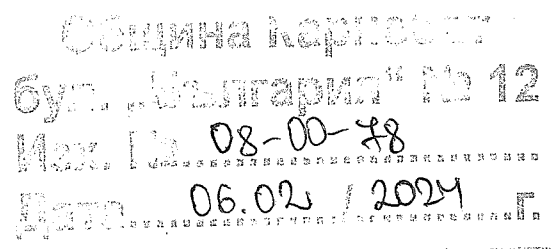 Община Карлово
бул. „България“ № 12
Изх. № 08-00-78
Дата 06.02 / 2024 г.